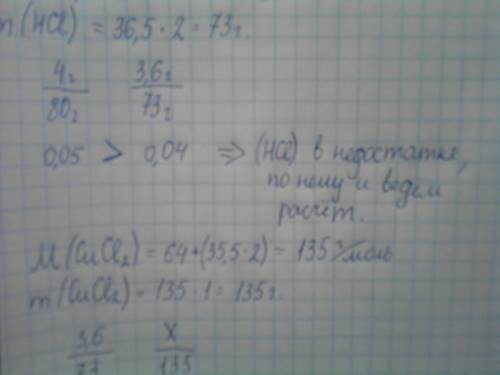 m(HCl) = 36,5·2 = 73г.
4г 3,6г
80г 73г
0,05 > 0,04 ⇒ (HCl) в недостатке,
по нему и ведем
расчёт.
M(CuCl₂) = 64+(35,5·2) = 135 г/моль
m(CuCl₂) = 135·1 = 135г.
3,6 X
73 135